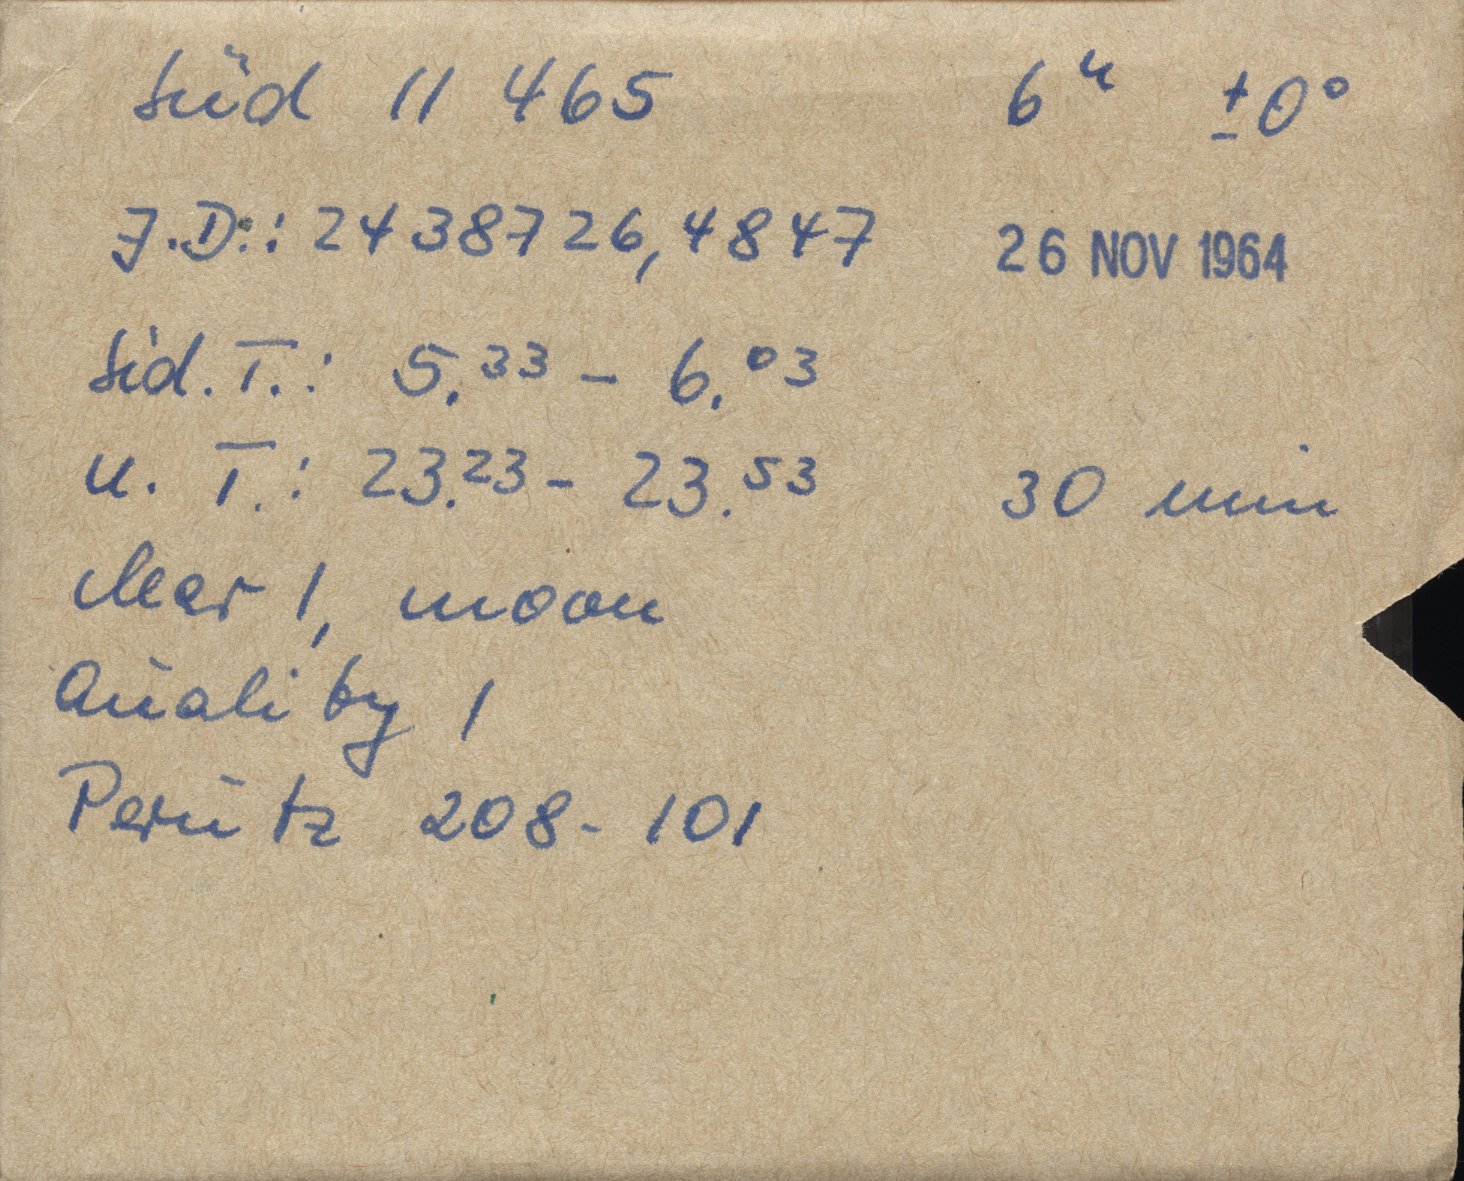 Süd 11 465 6ʰ ±0°
J.D.: 2438726,4847 26 NOV 1964
Sid. T.: 5.³³ - 6.⁰³
U. T.: 23.²³ - 23.⁵³ 30 min
clear 1, moon
Quality 1
Perutz 208-101